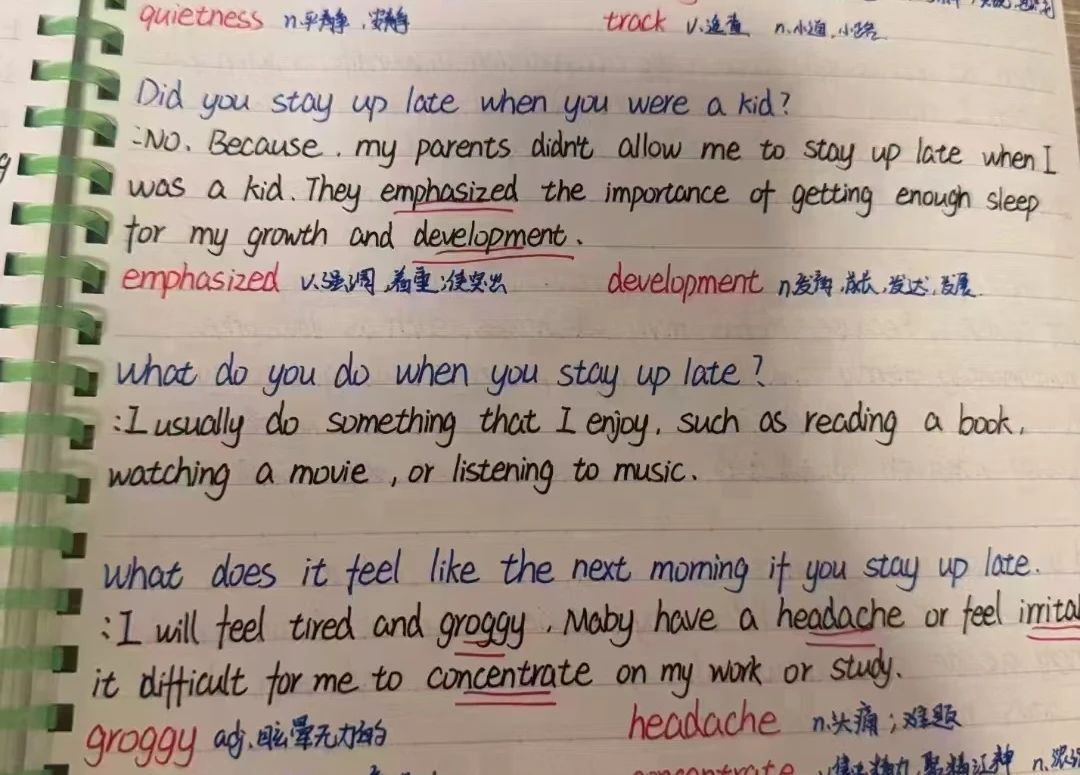 quietness n.平静,安静 track v.追查 n.小道,小路
Did you stay up late when you were a kid?
:NO. Because. my parents didn't allow me to stay up late when I
was a kid. They emphasized the importance of getting enough sleep
for my growth and development.
emphasized v.强调,着重;使突出 development n.发育,成长,发达,发展
What do you do when you stay up late?
:I usually do something that I enjoy. such as reading a book.
watching a movie , or listening to music.
what does it feel like the next morning if you stay up late.
:I will feel tired and groggy. Maby have a headache or feel irrita
it difficult for me to concentrate on my work or study.
groggy adj.眩晕无力的 headache n.头痛;难题
concentrate